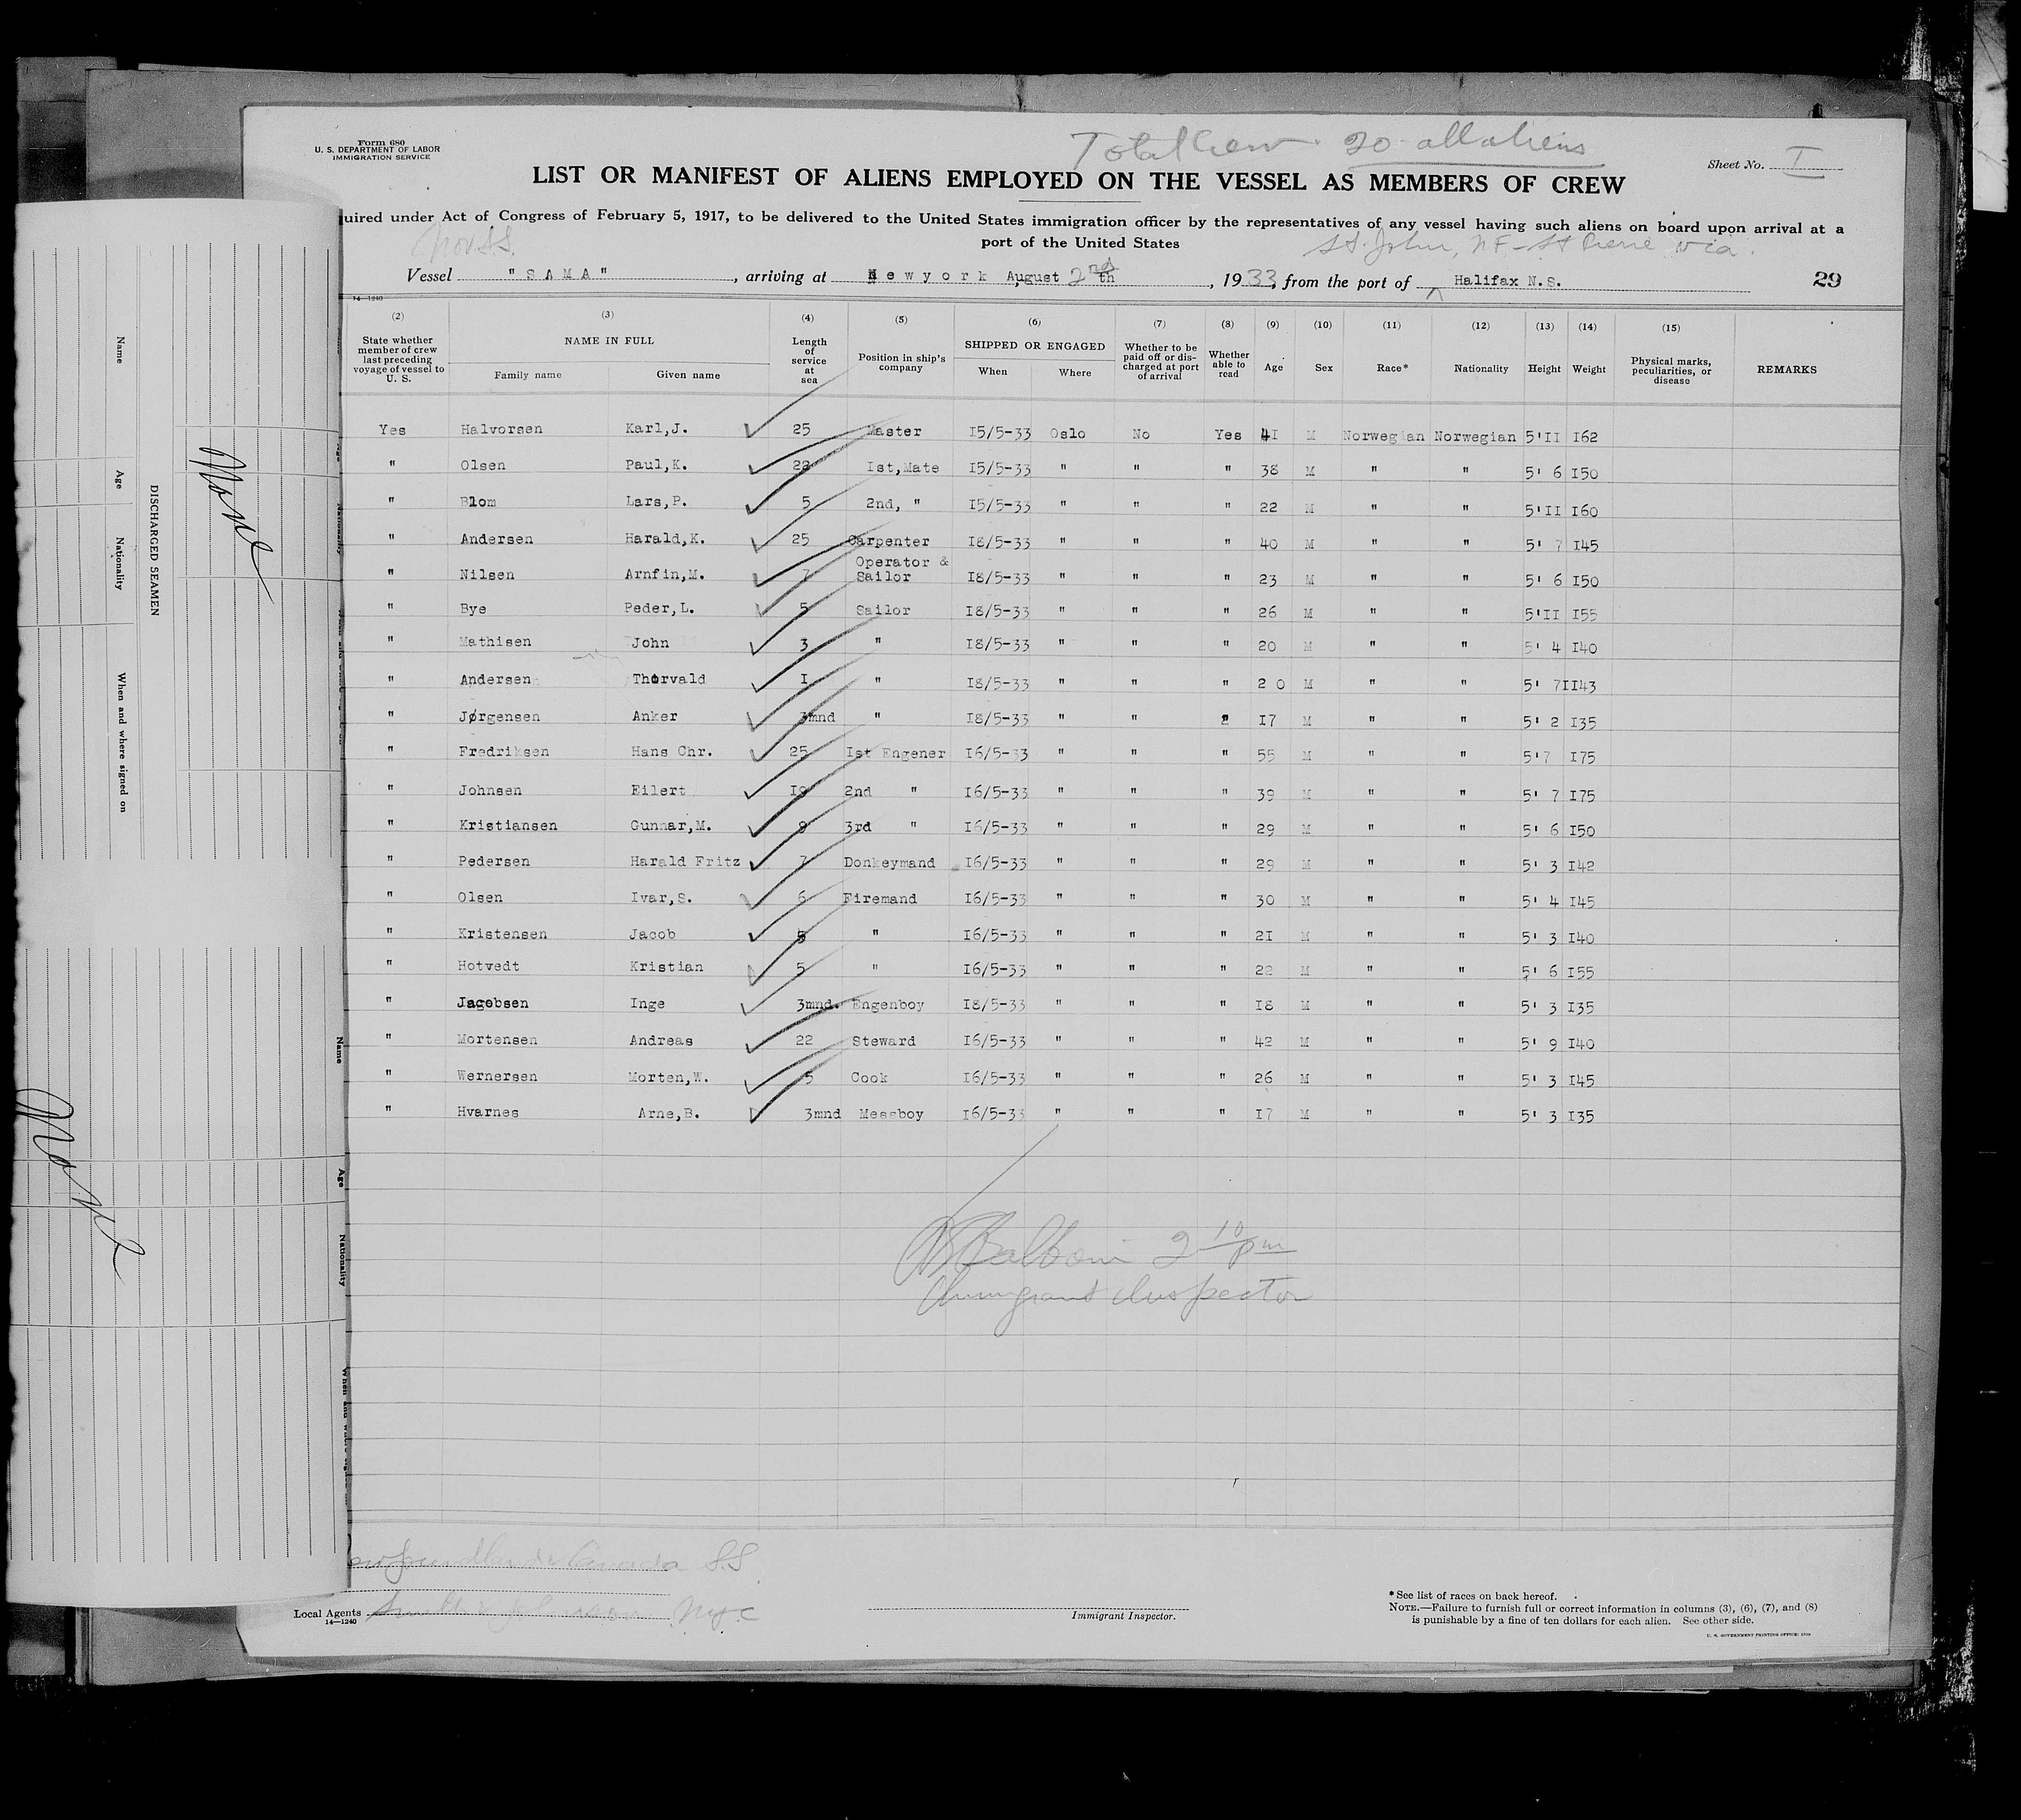 Form 680
U. S. DEPARTMENT OF LABOR
IMMIGRATION SERVICE
Total Crew 20 all aliens
Sheet No. I
LIST OR MANIFEST OF ALIENS EMPLOYED ON THE VESSEL AS MEMBERS OF CREW
uired under Act of Congress of February 5, 1917, to be delivered to the United States immigration officer by the representatives of any vessel having such aliens on board upon arrival at a
port of the United States
Nor. S.S.
St. John, NF - St Pierre via
Vessel "SAMA", arriving at Newyork August 2nd th, 1933, from the port of Halifax N.S. 29
14—1240
(2) (3) (4) (5) (6) (7) (8) (9) (10) (11) (12) (13) (14) (15)
State whether member of crew last preceding voyage of vessel to U. S. NAME IN FULL Family name Given name Length of service at sea Position in ship's company SHIPPED OR ENGAGED When Where Whether to be paid off or discharged at port of arrival Whether able to read Age Sex Race* Nationality Height Weight Physical marks, peculiarities, or disease REMARKS
Yes Halvorsen Karl,J. 25 Master I5/5-33 Oslo No Yes 4I M Norwegian Norwegian 5'II I62
" Olsen Paul,K. 22 Ist,Mate I5/5-33 " " " 38 M " " 5' 6 I50
" Blom Lars,P. 5 2nd, " I5/5-33 " " " 22 M " " 5'II I60
" Andersen Harald,K. 25 Carpenter I8/5-33 " " " 40 M " " 5' 7 I45
" Nilsen Arnfin,M. 7 Operator & Sailor I8/5-33 " " " 23 M " " 5' 6 I50
" Bye Peder,L. 5 Sailor I8/5-33 " " " 26 M " " 5'II I55
" Mathisen John 3 " I8/5-33 " " " 20 M " " 5' 4 I40
" Andersen Thorvald I " I8/5-33 " " " 2 0 M " " 5' 7II43
" Jørgensen Anker 3mnd " I8/5-33 " " " I7 M " " 5' 2 I35
" Fredriksen Hans Chr. 25 Ist Engener I6/5-33 " " " 55 M " " 5'7 I75
" Johnsen Eilert I9 2nd " I6/5-33 " " " 39 M " " 5' 7 I75
" Kristiansen Gunnar,M. 9 3rd " I6/5-33 " " " 29 M " " 5' 6 I50
" Pedersen Harald Fritz 7 Donkeymand I6/5-33 " " " 29 M " " 5' 3 I42
" Olsen Ivar,S. 6 Firemand I6/5-33 " " " 30 M " " 5' 4 I45
" Kristensen Jacob 5 " I6/5-33 " " " 2I M " " 5' 3 I40
" Hotvedt Kristian 5 " I6/5-33 " " " 22 M " " 5' 6 I55
" Jacobsen Inge 3mnd. Engenboy I8/5-33 " " " I8 M " " 5' 3 I35
" Mortensen Andreas 22 Steward I6/5-33 " " " 42 M " " 5' 9 I40
" Wernersen Morten,W. 5 Cook I6/5-33 " " " 26 M " " 5' 3 I45
" Hvarnes Arne,B. 3mnd Messboy I6/5-33 " " " I7 M " " 5' 3 I35
Baldwin 2 10 pm
Immigrant Inspector
Canada S.S.
Local Agents Smith & Johnson NYC
14—1240
Immigrant Inspector.
*See list of races on back hereof.
NOTE.—Failure to furnish full or correct information in columns (3), (6), (7), and (8)
is punishable by a fine of ten dollars for each alien. See other side.
Name
Age
Nationality
When and where signed on
DISCHARGED SEAMEN
None
Name
Age
Nationality
None